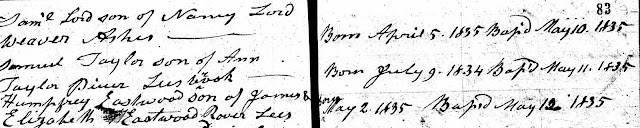 83
Saml Lord son of Nancy Lord
Weaver Ashes
Born April 5. 1835 Bapd May 10. 1835
Samuel Taylor son of Ann
Taylor Lees
Born July 9. 1834 Bapd May 11. 1835
Humphrey Eastwood son of James &
Elizabeth Eastwood Rover Lees
May 2. 1835 Bapd May 12 1835